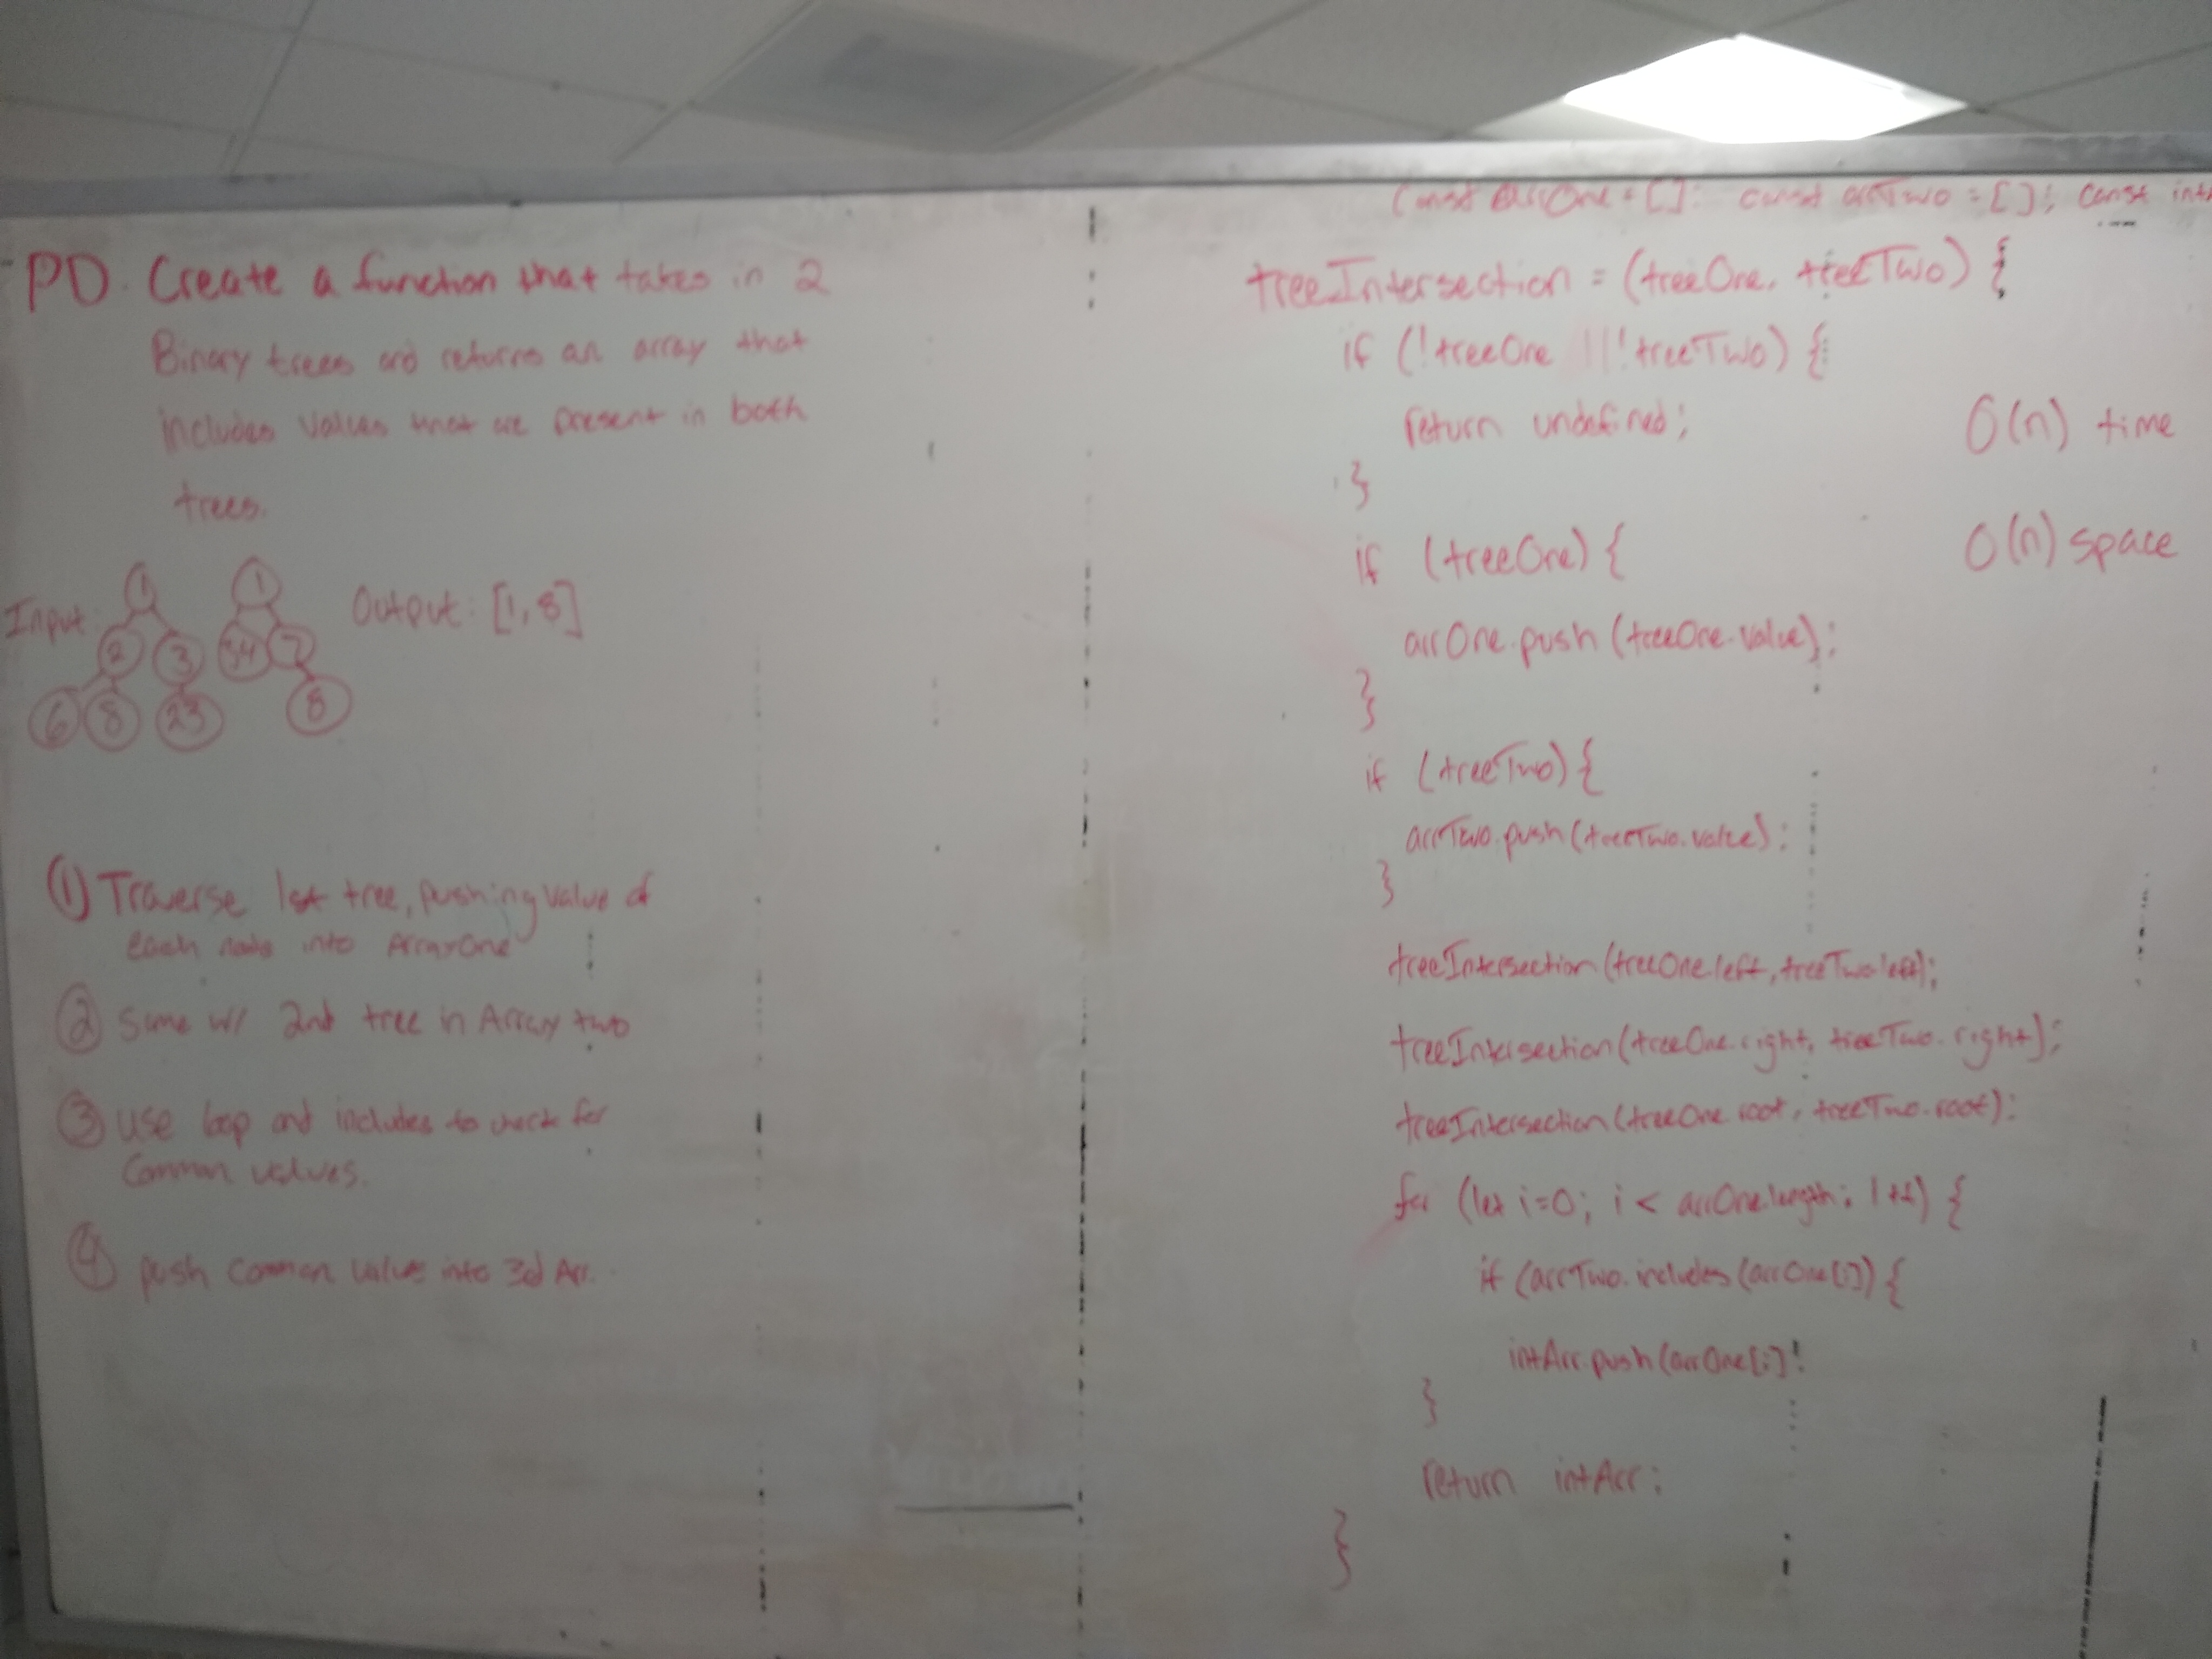 PD. Create a function that takes in 2
Binary trees and returns an array that
includes values that are present in both
trees.
Input: Output: [1, 8]
1 1
2 3 34 7
6 8 23 8
① Traverse 1st tree, pushing value of
each node into ArrayOne
② Same w/ 2nd tree in Array two
③ use loop and includes to check for
Common values.
④ push common value into 3rd Arr.
const arrOne = []; const arrTwo = []; const int
treeIntersection = (treeOne, treeTwo) {
if (!treeOne || !treeTwo) {
return undefined;
}
if (treeOne) {
arrOne.push(treeOne.value);
}
if (treeTwo) {
arrTwo.push(treeTwo.value);
}
treeIntersection(treeOne.left, treeTwo.left);
treeIntersection(treeOne.right, treeTwo.right);
treeIntersection(treeOne.root, treeTwo.root);
for (let i=0; i < arrOne.length; i++) {
if (arrTwo.includes(arrOne[i]) {
intArr.push(arrOne[i]!
}
return intArr;
}
O(n) time
O(n) space